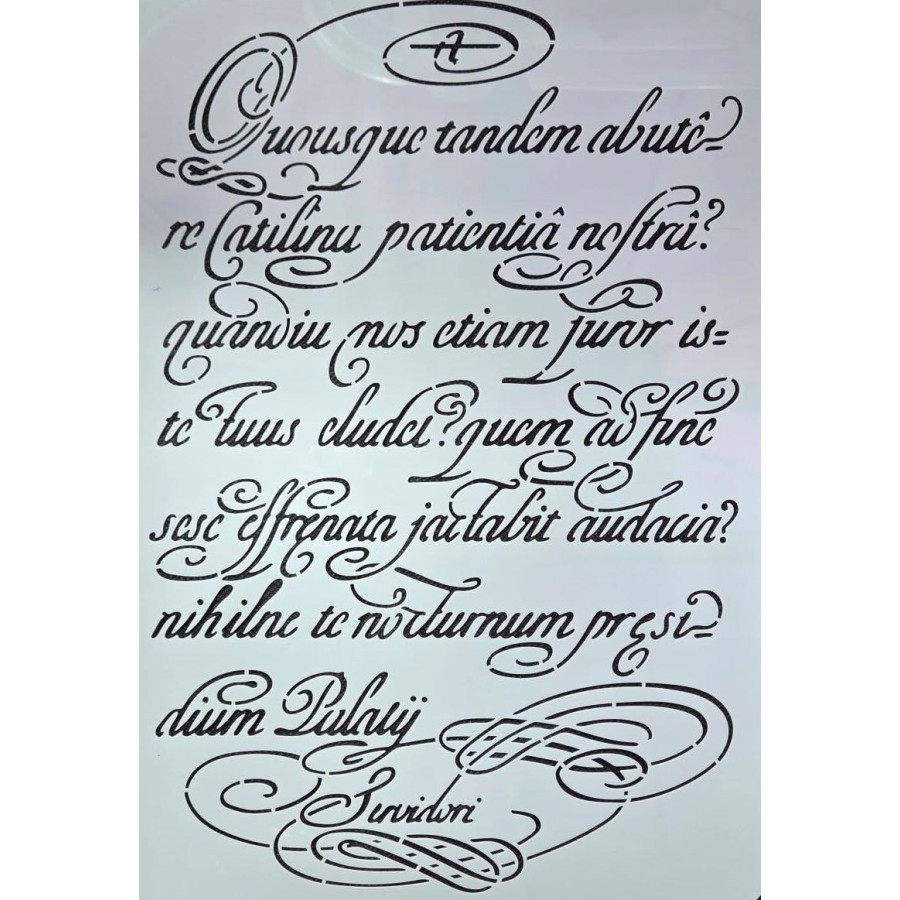 A
Quousque tandem abutê=
re Catilina patientiâ nostrâ?
quandiu nos etiam furor is=
te tuus eludet? quem ad fine
sese effrenata jactabit audacia?
nihilne te nocturnum pręsi=
dium Palatij
Servidori